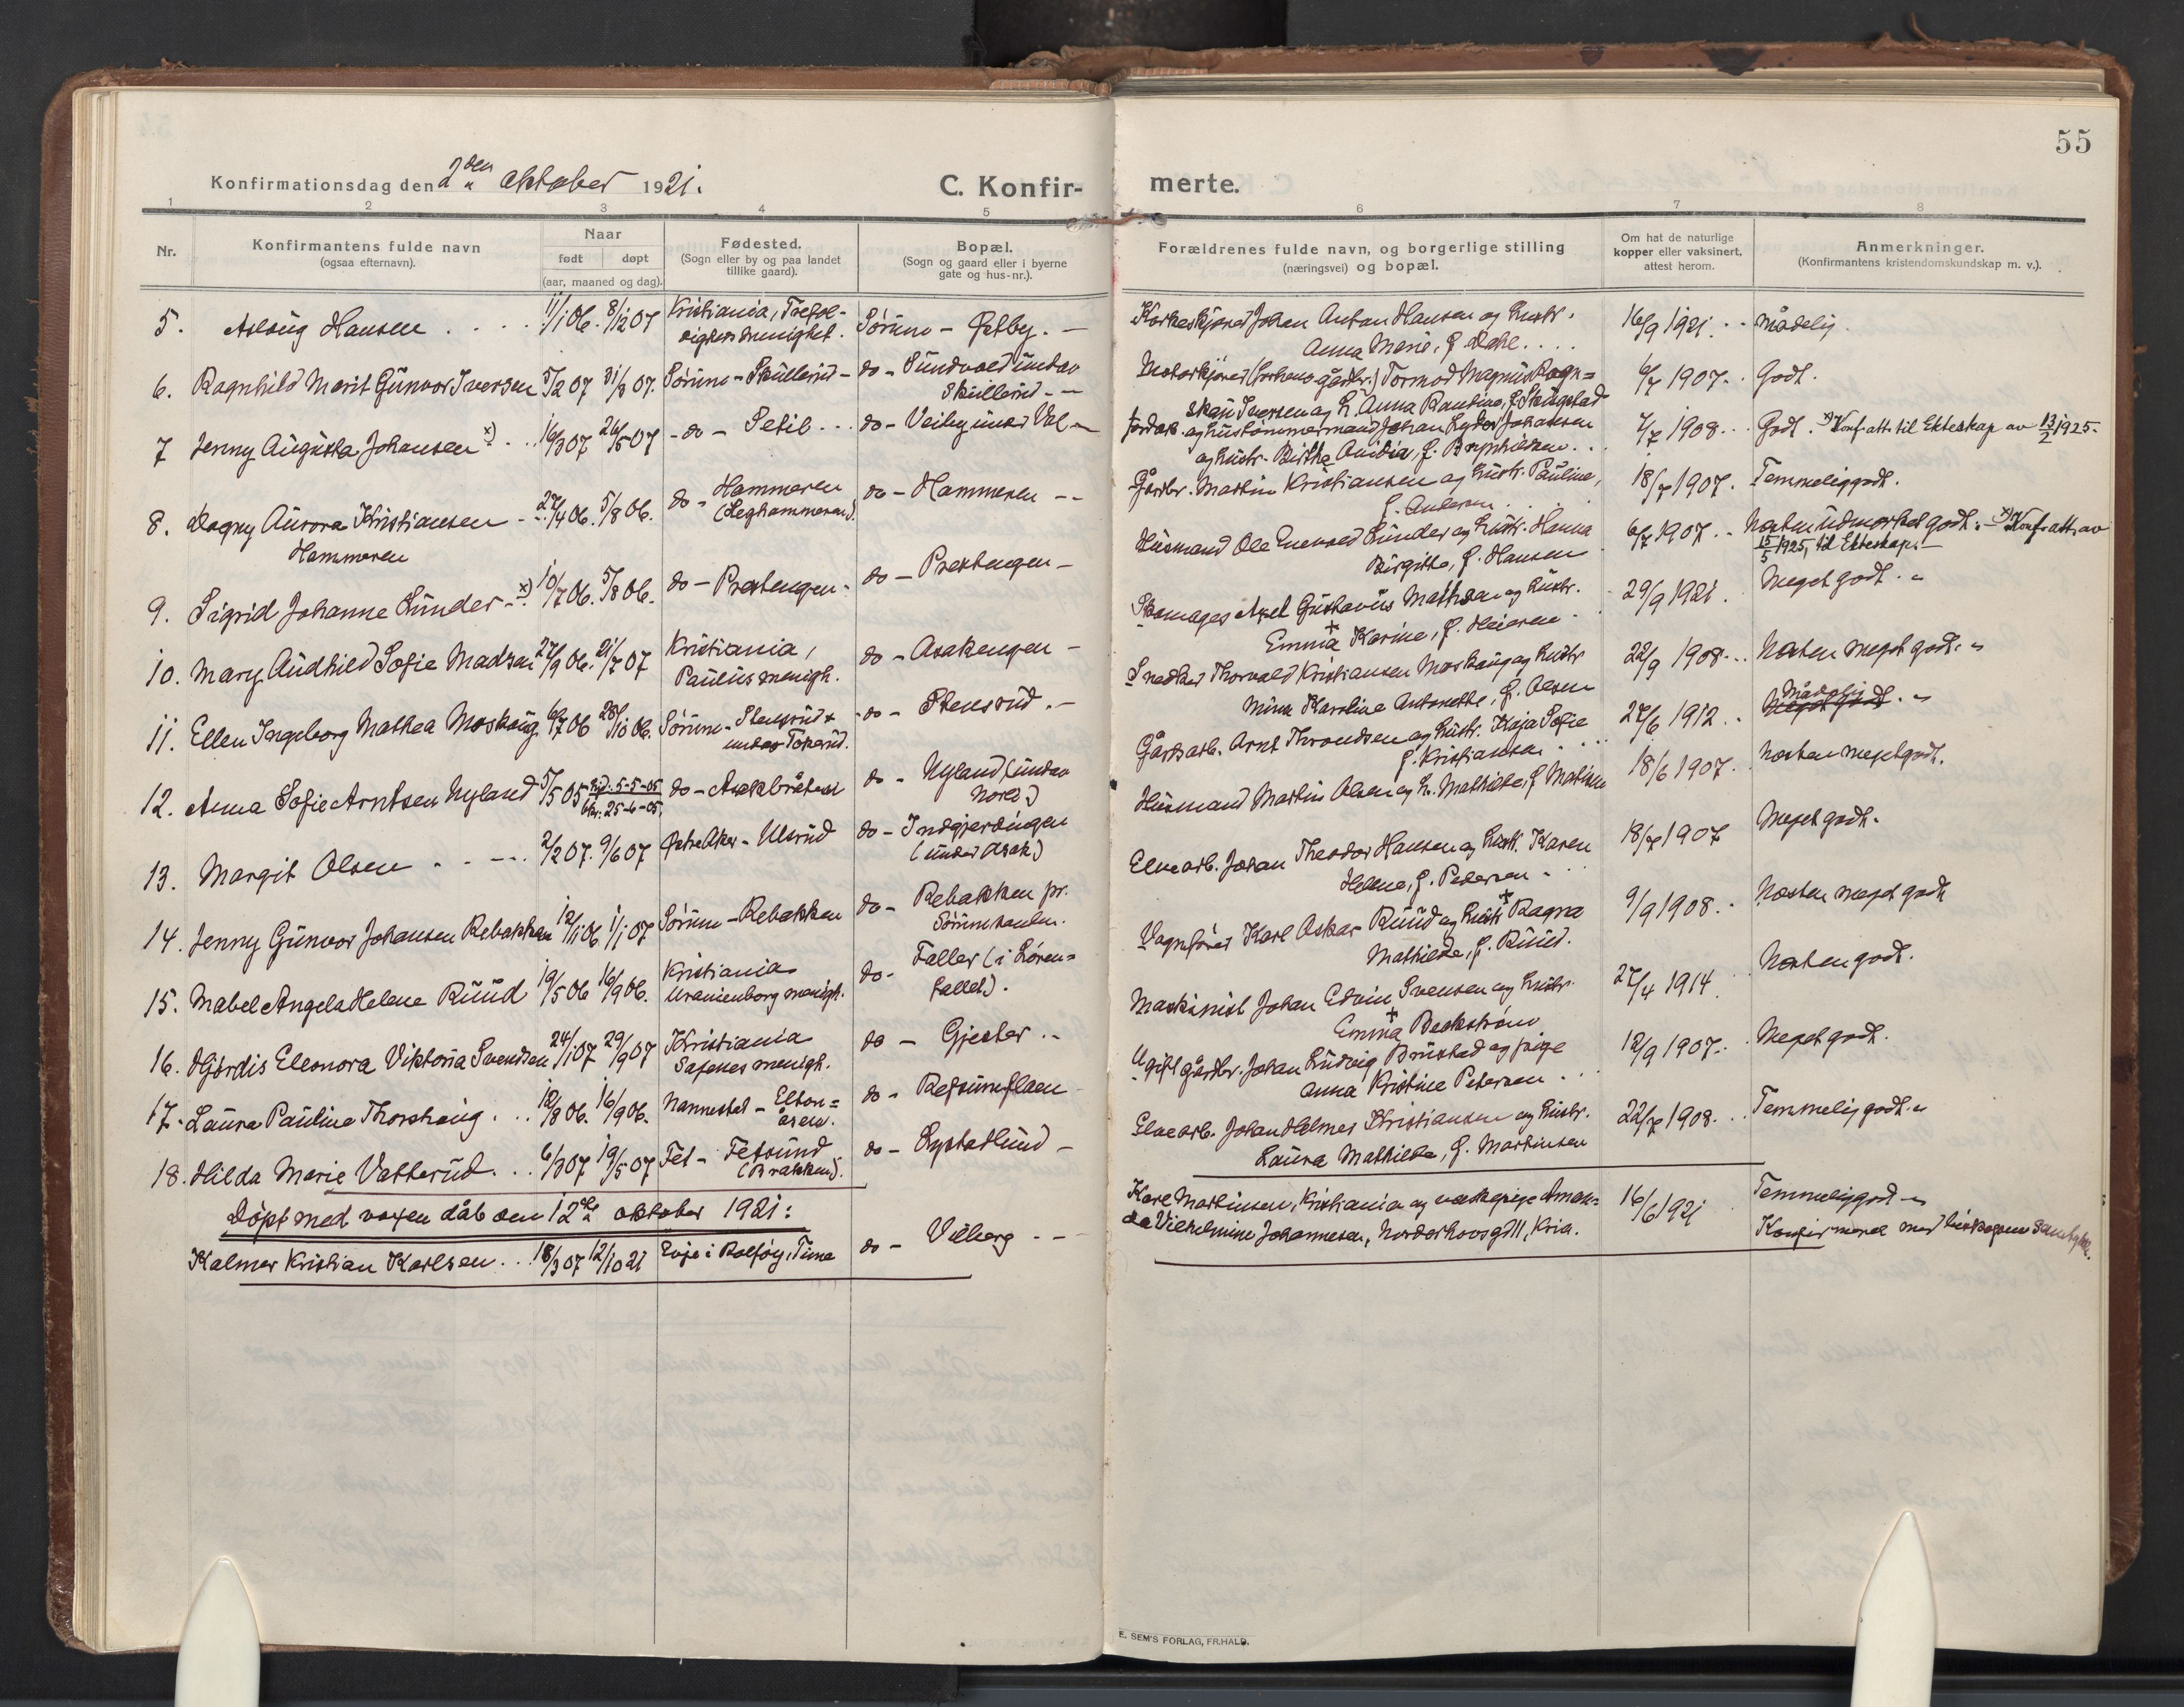 55
Konfirmationsdag den 2den oktober 1921.
C. Konfir-
merte.
1 2 3 4 5 6 7 8
Nr.
Konfirmantens fulde navn
(ogsaa efternavn).
Naar
født døpt
(aar, maaned og dag).
Fødested.
(Sogn eller by og paa landet
tillike gaard).
Bopæl.
(Sogn og gaard eller i byerne
gate og hus-nr.).
Forældrenes fulde navn, og borgerlige stilling
(næringsvei) og bopæl.
Om hat de naturlige
kopper eller vaksinert,
attest herom.
Anmerkninger.
(Konfirmantens kristendomskundskap m. v.).
5. Aslaug Hansen 11/1 06. 8/12 07 Kristiania, Trefol-
digkers menighet. Sørum - Østby. -
Johan Anton Hansen og hustr.
Anna Marie, f. Dahl
16/9 1921. mådelig.
6. Ragnhild Marit Gunvor Iversen 5/2 07 31/3 07. Sørum - Skullerud - do - Sundvold under
Skullerud -
Motorkjører (forhens gårdbr.) Tormod Magnus
Iversen og h. Anna Randine, f. Skugstad
6/7 1907. Godt.
7 Jenny Augusta Johansen x) 16/3 07 26/5 07 - do - Petib do - Veiby under Val -
og hustømmermand Johan Lyder Johansen
og hustr. Birthe
7/7 1908. Godt. x) Konf. att. til Ekteskap av 13/2 1925.
8. Dagny Aurora Kristiansen 27/4 06. 5/8 06. do - Hammeren
Hammeren
(Leghammeren). do - Hammeren -
Gårdbr. Martin Kristiansen og hustr. Pauline,
f. Andersen
18/7 1907. Temmelig godt.
9. Sigrid Johanne Lunder x) 10/7 06. 5/8 06. do - Prestengen - do - Prestengen -
Husmand Ole Enevold Lunder og hustr. Hanna
Birgitte, f. Hansen
6/7 1907. Næsten udmerket godt. - x) Konf. att. av
15/5 1925, til Ekteskap. -
10. Mary Audhild Sofie Madsen 27/9 06. 21/7 07 Kristiania,
Paulus menigh. do - Asakengen -
Skomager Axel Gustavus Mathsen og hustr.
Emma Karine, f. Heieren
29/9 1921. Meget godt.
11. Ellen Ingeborg Mathea Moshaug 6/7 06 28/10 06. Sørum - Stensrud
under Tokerud. do - Stensrud. -
Snedker Thorvald Kristiansen Moshaug og hustr
Mina Karoline Antonette, f. Olsen
22/9 1908. Næsten meget godt.
12. Anna Sofie Arntsen Nyland 5/5 05 Hjd. 5-5-05
Kir. 25-6-05. do - Asakbråten do - Nyland (under
Nord.)
Gårdsarb. Arnt Throndsen og hustr. Kaja Sofie
f. Kristiansen
27/6 1912. Mådelig
Meget godt.
13. Margit Olsen 2/2 07. 9/6 07 Østre Aker - Ulsrud do - Indgjerdingen
(under Asak)
Husmand Martin Olsen og h. Mathilde, f. Madsen
18/6 1907. Næsten meget godt.
14. Jenny Gunvor Johansen Rebakken 12/11 06. 1/1 07 Sørum - Rebakken do - Rebakken pr.
Sørumsanden.
Elvearb. Johan Theodor Hansen og hustr. Karen
Helene, f. Pedersen
18/7 1907 Meget godt.
15. Mabel Angela Helene Ruud 19/5 06 16/9 06. Kristiania
Uranienborg menigh. do - Faller (i Løren=
fallet).
Vognfører Karl Oskar Ruud og hustr Ragna
Mathilde, f. Ruud.
9/9 1908. Næsten meget godt
16. Hjørdis Eleonora Viktoria Svendsen 24/1 07 29/9 07 Kristiania
Sofenes menigh. do - Gjester
Maskinist Johan Edvin Svensen og hustr.
Emma Beckstrøm
27/4 1914. Næsten godt.
17. Laura Pauline Thorshaug 12/8 06. 16/9 06. Nannestad - Elton=
åsen. do - Refsumflaen
Ugift gårdbr. Johan Ludvig Brustad og pige
Anna Kristine Petersen
12/9 1907. Meget godt.
18. Hilda Marie Vatterud 6/3 07 19/5 07 Fet - Fetsund
(Brakken). do - Lystadlund -
Elvearb. Johan Helmer Kristiansen og hustr.
Laura Mathilde, f. Martinsen
22/7 1908. Temmelig godt.
Døpt med voxen dåb den 12te oktober 1921:
Kalmer Kristian Karlsen 18/3 07 12/10 21 Evje i Rolfsøy, Tune do - Vilberg -
Karl Martinsen, Kristiania og vaskepige Aman=
da Vilhelmine Johannesen, Norderhovsg. 11, Kria.
16/6 1921 Temmelig godt -
Konfirmeret med biskopens samtykke.
E. SEM'S FORLAG, FR.HALD.